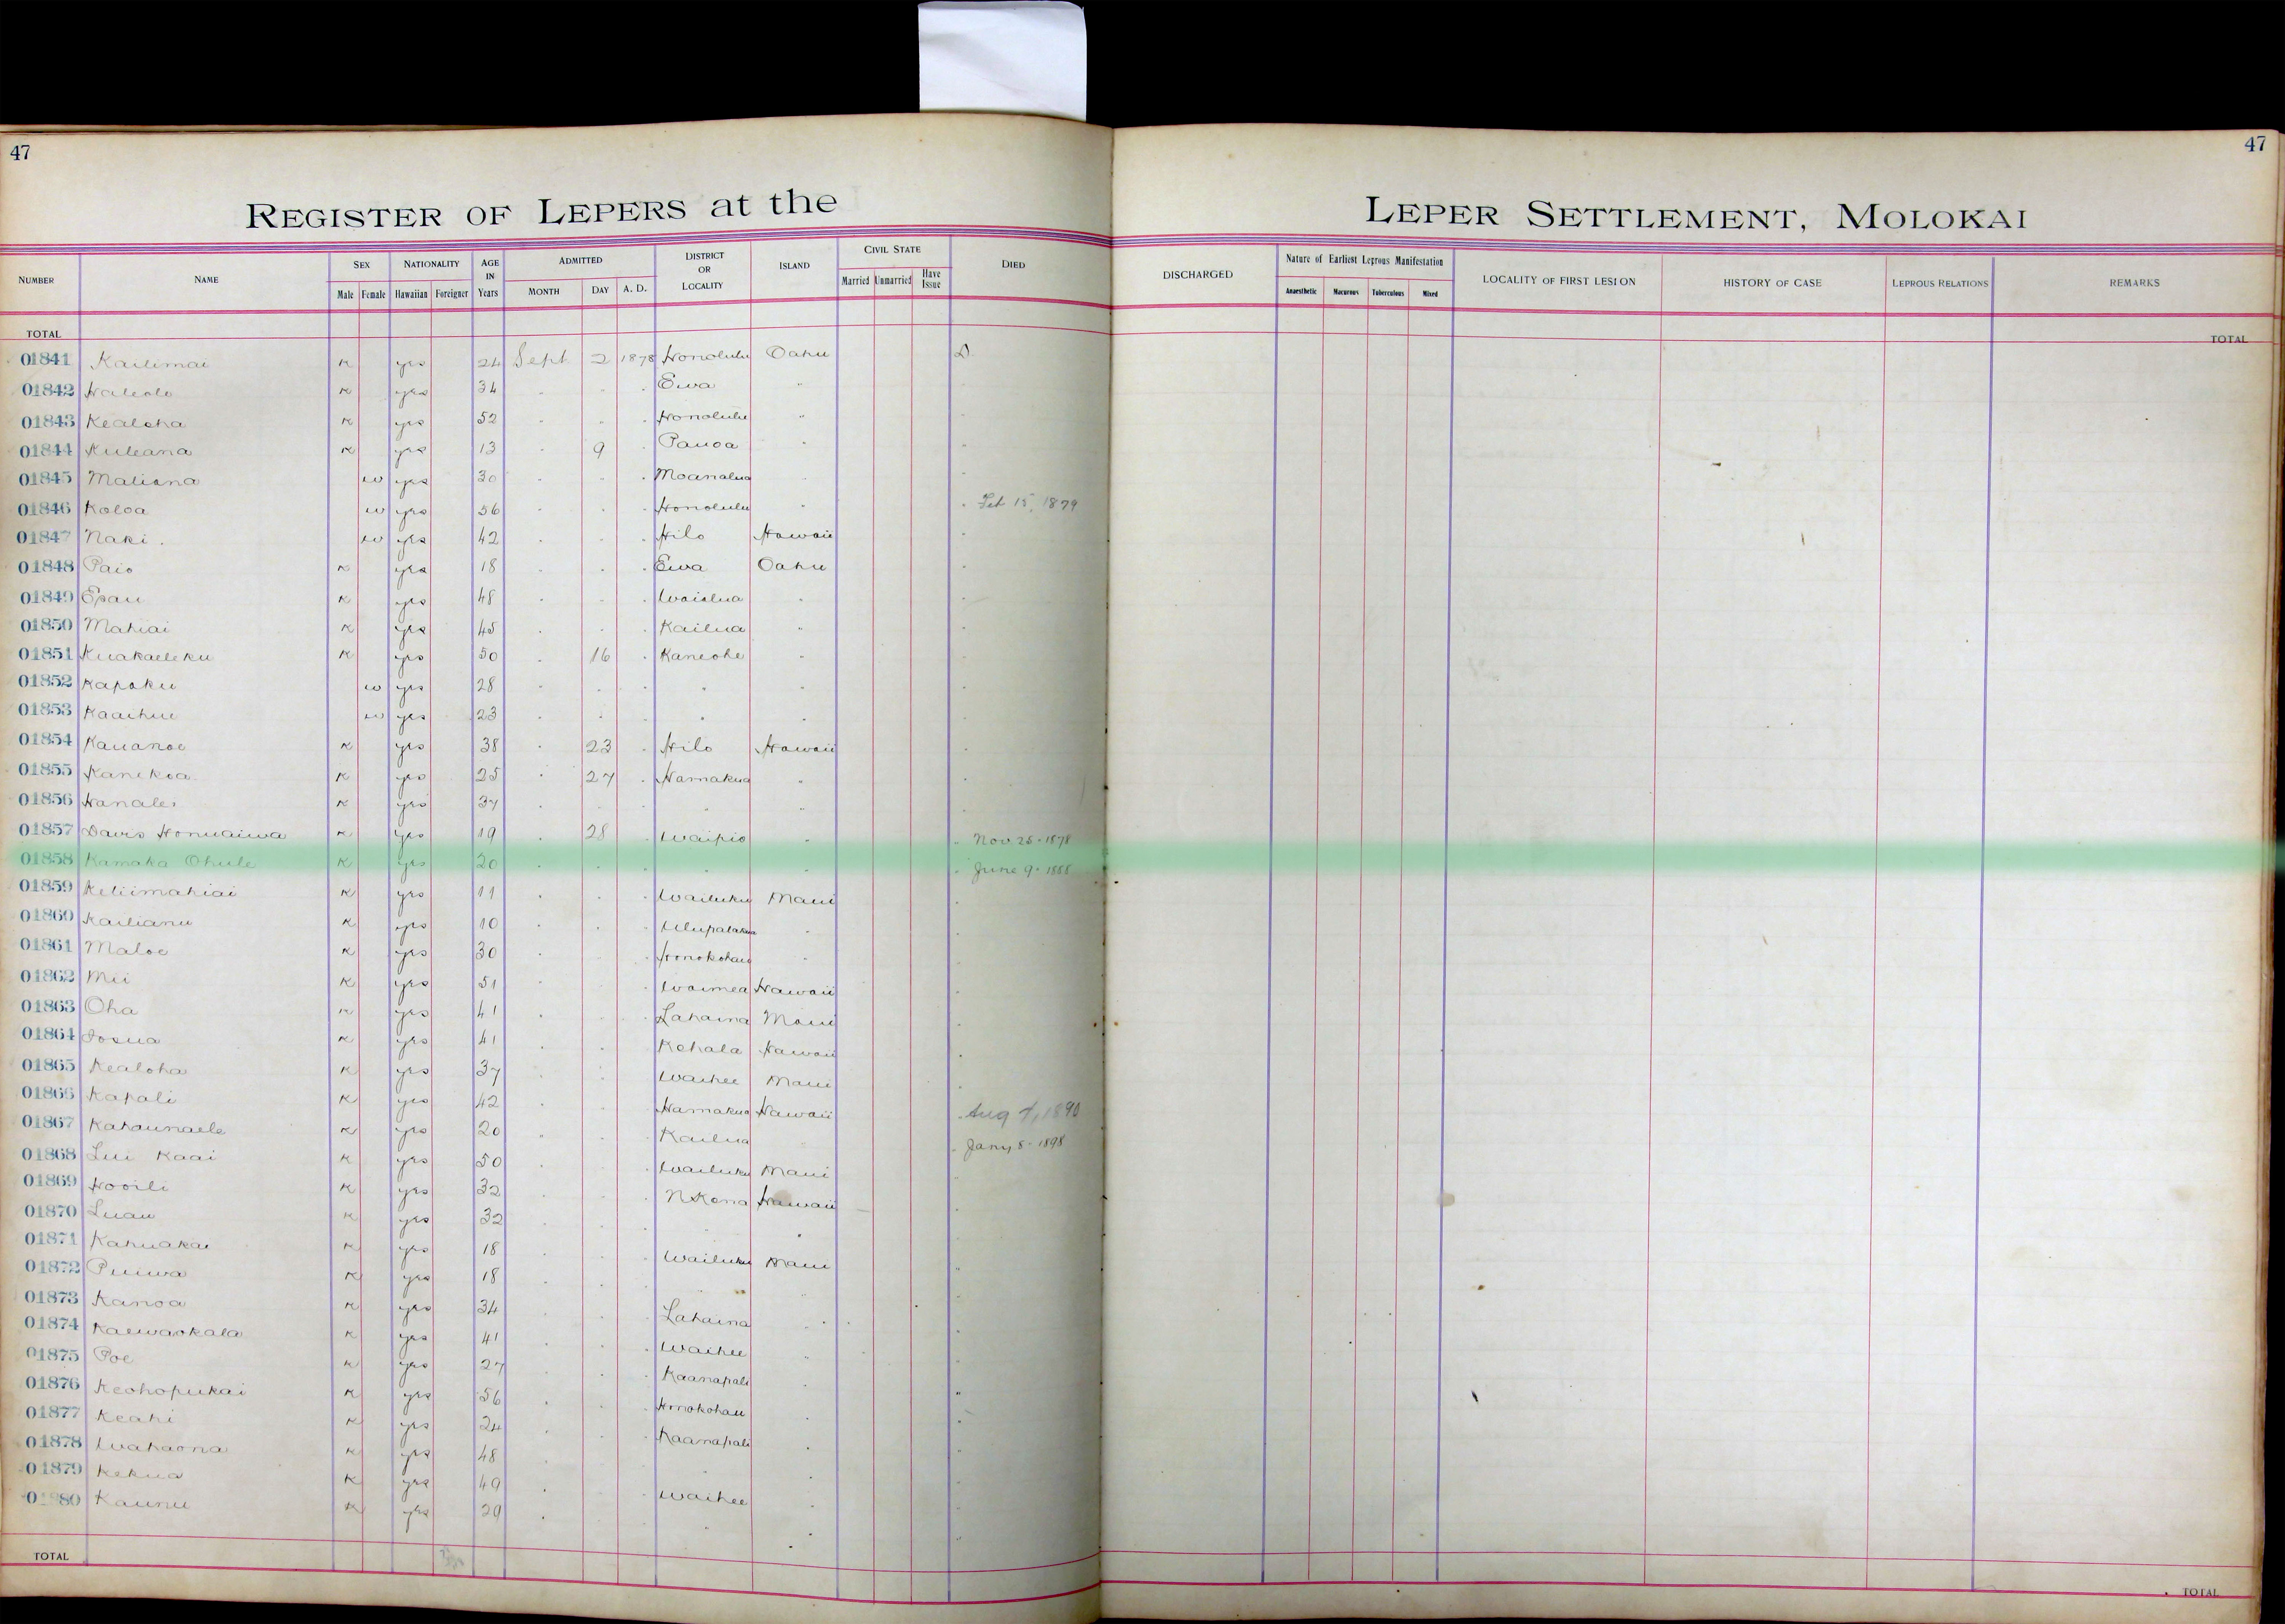 47
47
REGISTER OF LEPERS at the LEPER SETTLEMENT, MOLOKAI
NUMBER NAME SEX NATIONALITY AGE IN Years ADMITTED DISTRICT OR LOCALITY ISLAND CIVIL STATE DIED DISCHARGED Nature of Earliest Leprous Manifestation LOCALITY OF FIRST LESION HISTORY OF CASE LEPROUS RELATIONS REMARKS
Male Female Hawaiian Foreigner MONTH DAY A. D. Married Unmarried Have Issue Anaesthetic Macurous Tuberculous Mixed
TOTAL TOTAL
01841 Kailimai K yes 24 Sept 2 1878 Honolulu Oahu D
01842 Haleolo K yes 34 " " " Ewa "
01843 Kealoha K yes 52 " " " Honolulu "
01844 Kuleana K yes 13 " 9 " Pauoa "
01845 Maliana w yes 30 " " " Moanalua "
01846 Koloa w yes 56 " " " Honolulu " " Feb 15, 1879
01847 Naki w yes 42 " " " Hilo Hawaii "
01848 Paio K yes 18 " " " Ewa Oahu "
01849 Epau K yes 48 " " " Waialua " "
01850 Mahiai K yes 45 " " " Kailua " "
01851 Kuakaeleku K yes 50 " 16 " Kaneohe " "
01852 Kapoku w yes 28 " " " " " "
01853 Kaaihue w yes 23 " " " " " "
01854 Kauanoe K yes 38 " 23 " Hilo Hawaii "
01855 Kanekoa K yes 25 " 27 " Hamakua " "
01856 Hanalei K yes 37 " " " " " "
01857 Davis Honuaiwa K yes 19 " 28 " Waipio " " Nov. 25 - 1878
01858 Kamaka Ohule K yes 20 " " " " " " June 9 - 1888
01859 Keliimahiai K yes 11 " " " Wailuku Maui "
01860 Kailianu K yes 10 " " " Ulupalakua " "
01861 Maloe K yes 30 " " " Honokohau " "
01862 Mii K yes 51 " " " Waimea Hawaii "
01863 Oha K yes 41 " " " Lahaina Maui "
01864 Iosua K yes 41 " " " Kohala Hawaii "
01865 Kealoha K yes 37 " " " Waihee Maui "
01866 Kapali K yes 42 " " " Hamakua Hawaii " Aug 7, 1890
01867 Kahaunaele K yes 20 " " " Kailua " " Jany 8 - 1898
01868 Lui Kaai K yes 50 " " " Wailuku Maui "
01869 Hooili K yes 32 " " " N Kona Hawaii "
01870 Luau K yes 32 " " " " " "
01871 Kahuakai K yes 18 " " " Wailuku Maui "
01872 Puiwa K yes 18 " " " " " "
01873 Kanoa K yes 34 " " " Lahaina " "
01874 Kaewaokala K yes 41 " " " Waihee " "
01875 Poe K yes 27 " " " Kaanapali " "
01876 Keohopukai K yes 56 " " " Honokohau " "
01877 Keahi K yes 24 " " " Kaanapali " "
01878 Wahaona K yes 48 " " " " " "
01879 Kekua K yes 49 " " " Waihee " "
80 Kaunu K yes 29 " " " " " "
TOTAL TOTAL